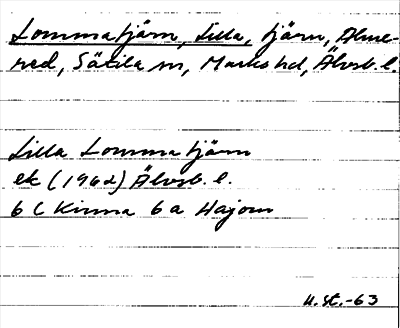 Lommatjärn, Lilla, tjärn, Älme-
red, Sätila sn, Marks hd, Älvsb. l.
Lilla Lommatjärn
ek (1962) Älvsb. l.
6 C Kinna 6 a Hajom
U. st. -63